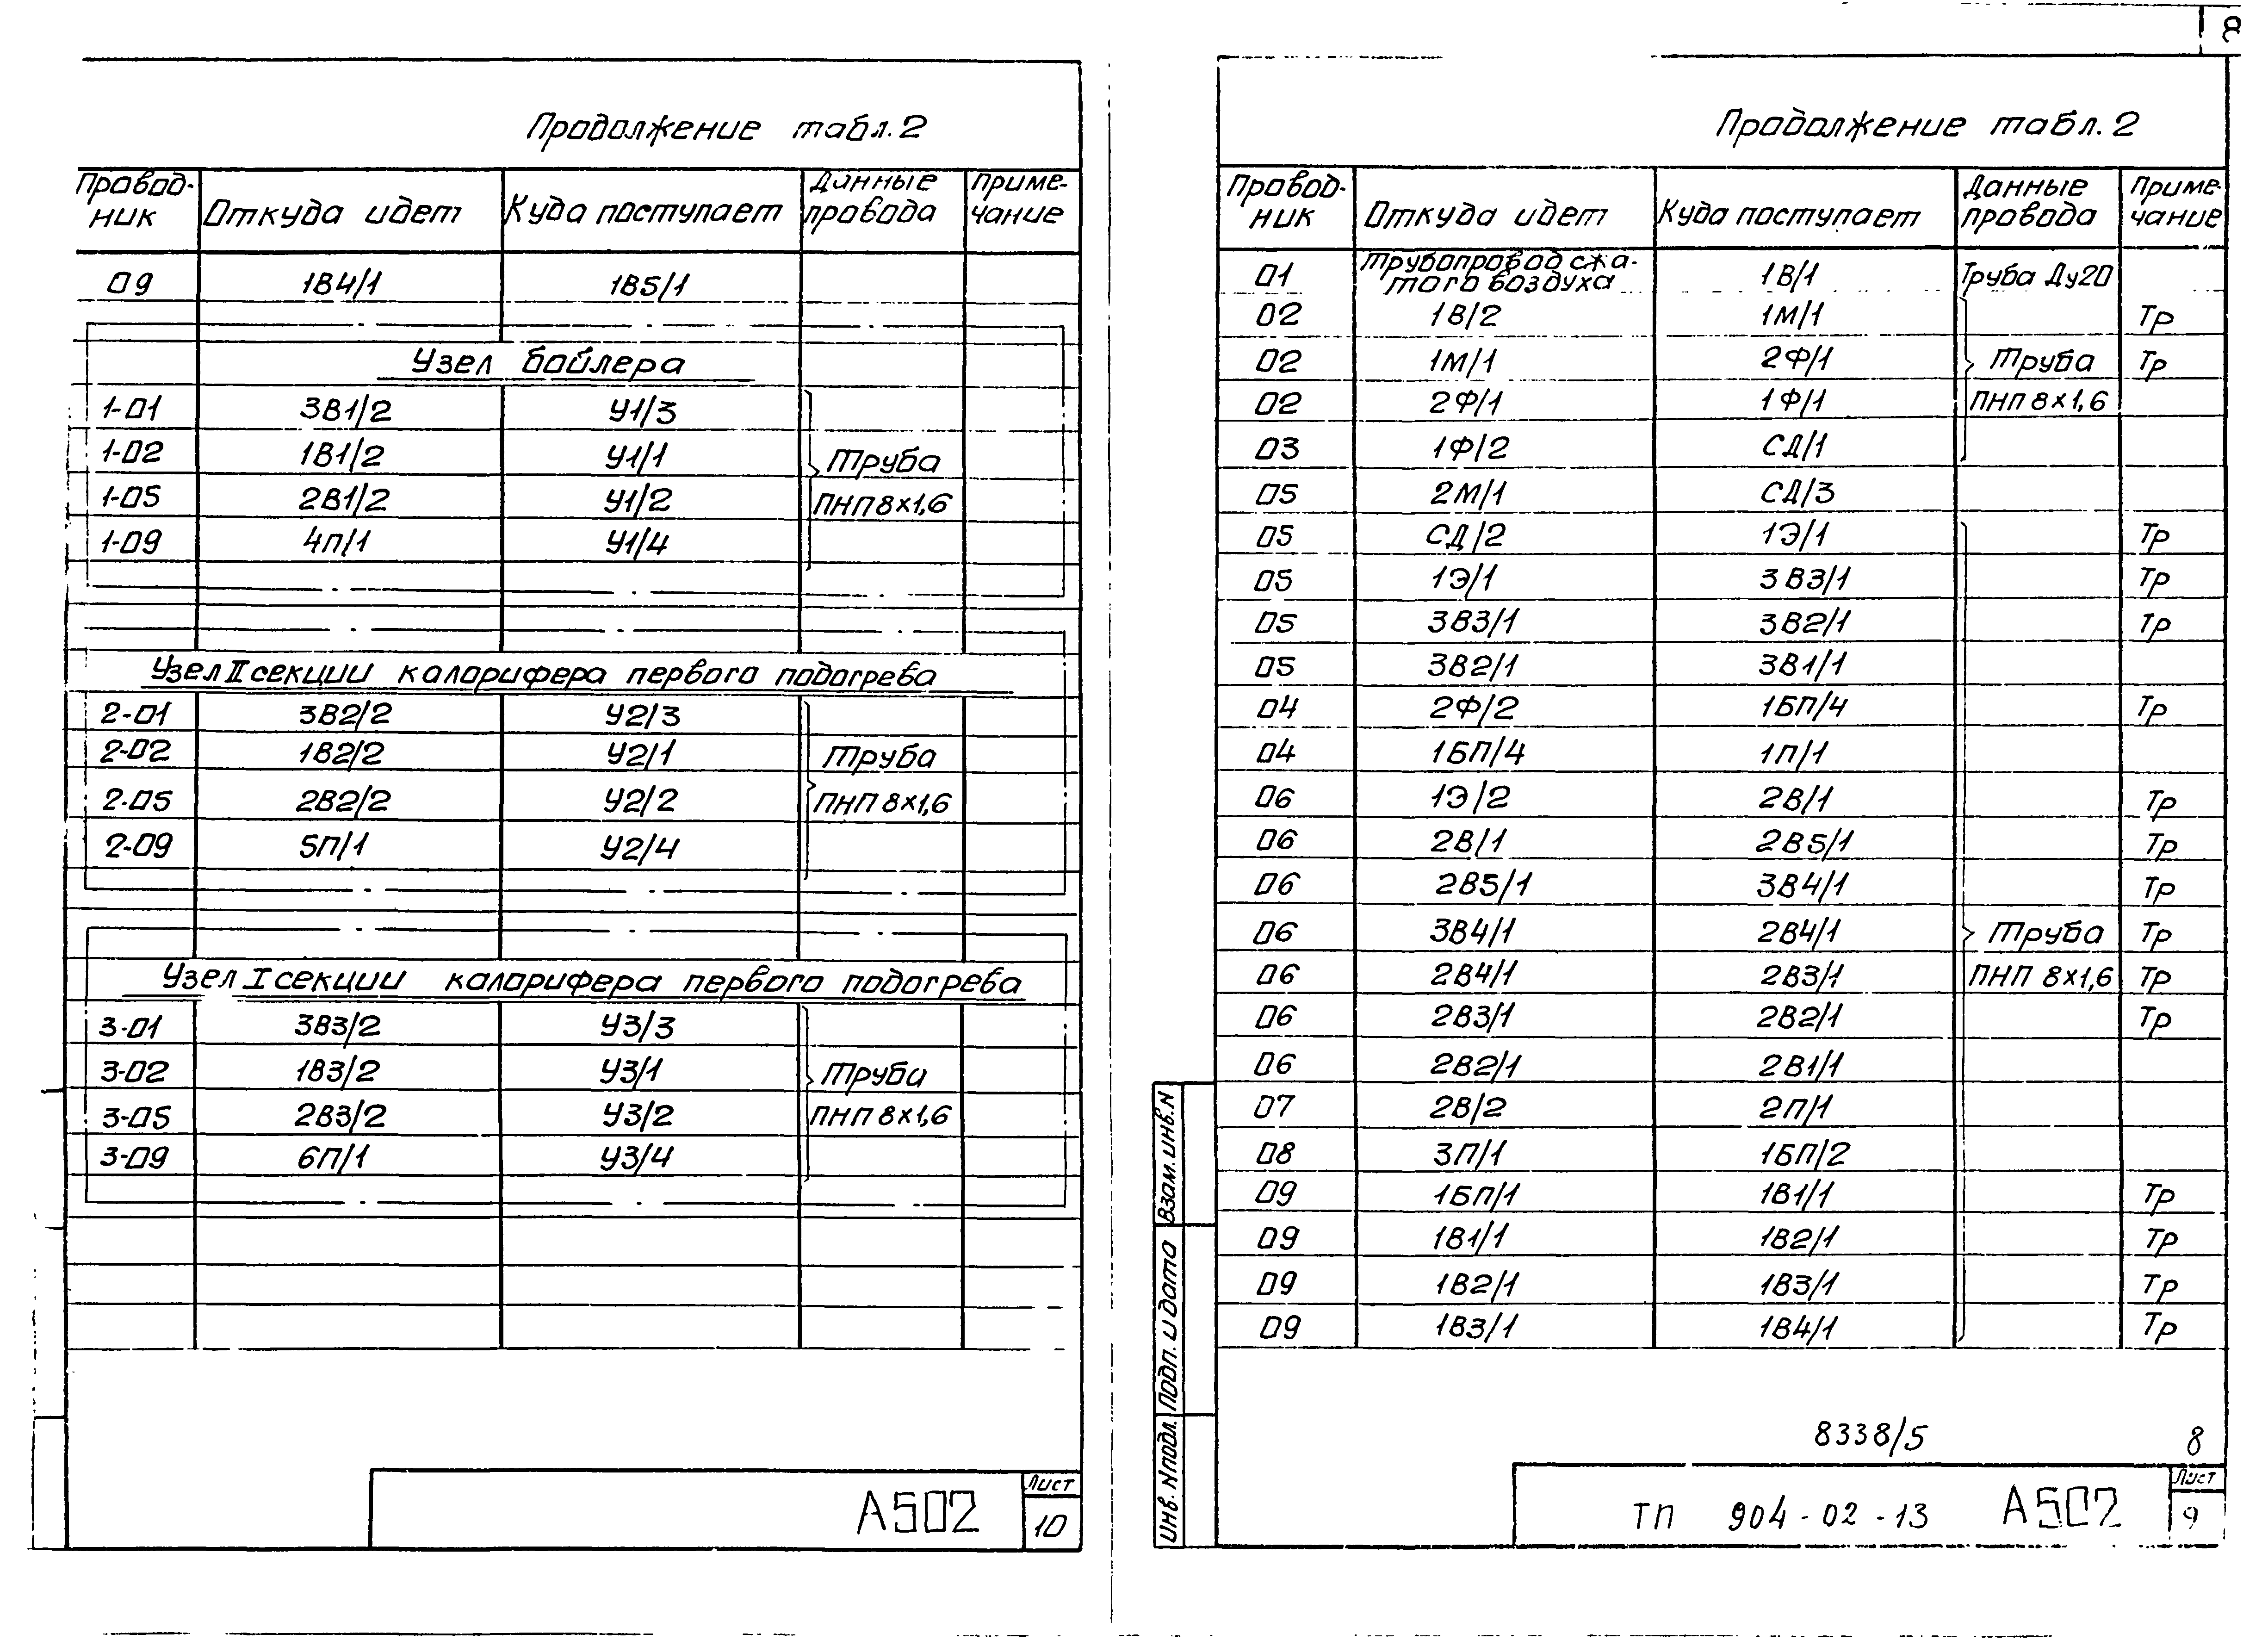 Продолжение табл.2
Провод- ник Откуда идет Куда поступает Данные провода Приме- чание
09 1В4/1 1В5/1
Узел бойлера
1-01 3В1/2 У1/3
1-02 1В1/2 У1/1 Труба
1-05 2В1/2 У1/2 ПНП 8×1,6
1-09 4П/1 У1/4
Узел II секции калорифера первого подогрева
2-01 3В2/2 У2/3
2-02 1В2/2 У2/1 Труба
2-05 2В2/2 У2/2 ПНП 8×1,6
2-09 5П/1 У2/4
Узел I секции калорифера первого подогрева
3-01 3В3/2 У3/3
3-02 1В3/2 У3/1 Труба
3-05 2В3/2 У3/2 ПНП 8×1,6
3-09 6П/1 У3/4
А502
Лист
10
Продолжение табл.2
Провод- ник Откуда идет Куда поступает Данные провода Приме- чание
01 Трубопровод сжа- того воздуха 1В/1 Труба Ду20
02 1В/2 1М/1 Тр
02 1М/1 2Ф/1 Труба Тр
02 2Ф/1 1Ф/1 ПНП 8×1,6
03 1Ф/2 СД/1
05 2М/1 СД/3
05 СД/2 1Э/1 Тр
05 1Э/1 3В3/1 Тр
05 3В3/1 3В2/1 Тр
05 3В2/1 3В1/1
04 2Ф/2 1БП/4 Тр
04 1БП/4 1П/1
06 1Э/2 2В/1 Тр
06 2В/1 2В5/1 Тр
06 2В5/1 3В4/1 Тр
06 3В4/1 2В4/1 Труба Тр
06 2В4/1 2В3/1 ПНП 8×1,6 Тр
06 2В3/1 2В2/1 Тр
06 2В2/1 2В1/1
07 2В/2 2П/1
08 3П/1 1БП/2
09 1БП/1 1В1/1 Тр
09 1В1/1 1В2/1 Тр
09 1В2/1 1В3/1 Тр
09 1В3/1 1В4/1 Тр
Взам. инв. N
Подп. и дата
Инв. N подл.
8338/5 8
ТП 904-02-13 А502
Лист
9